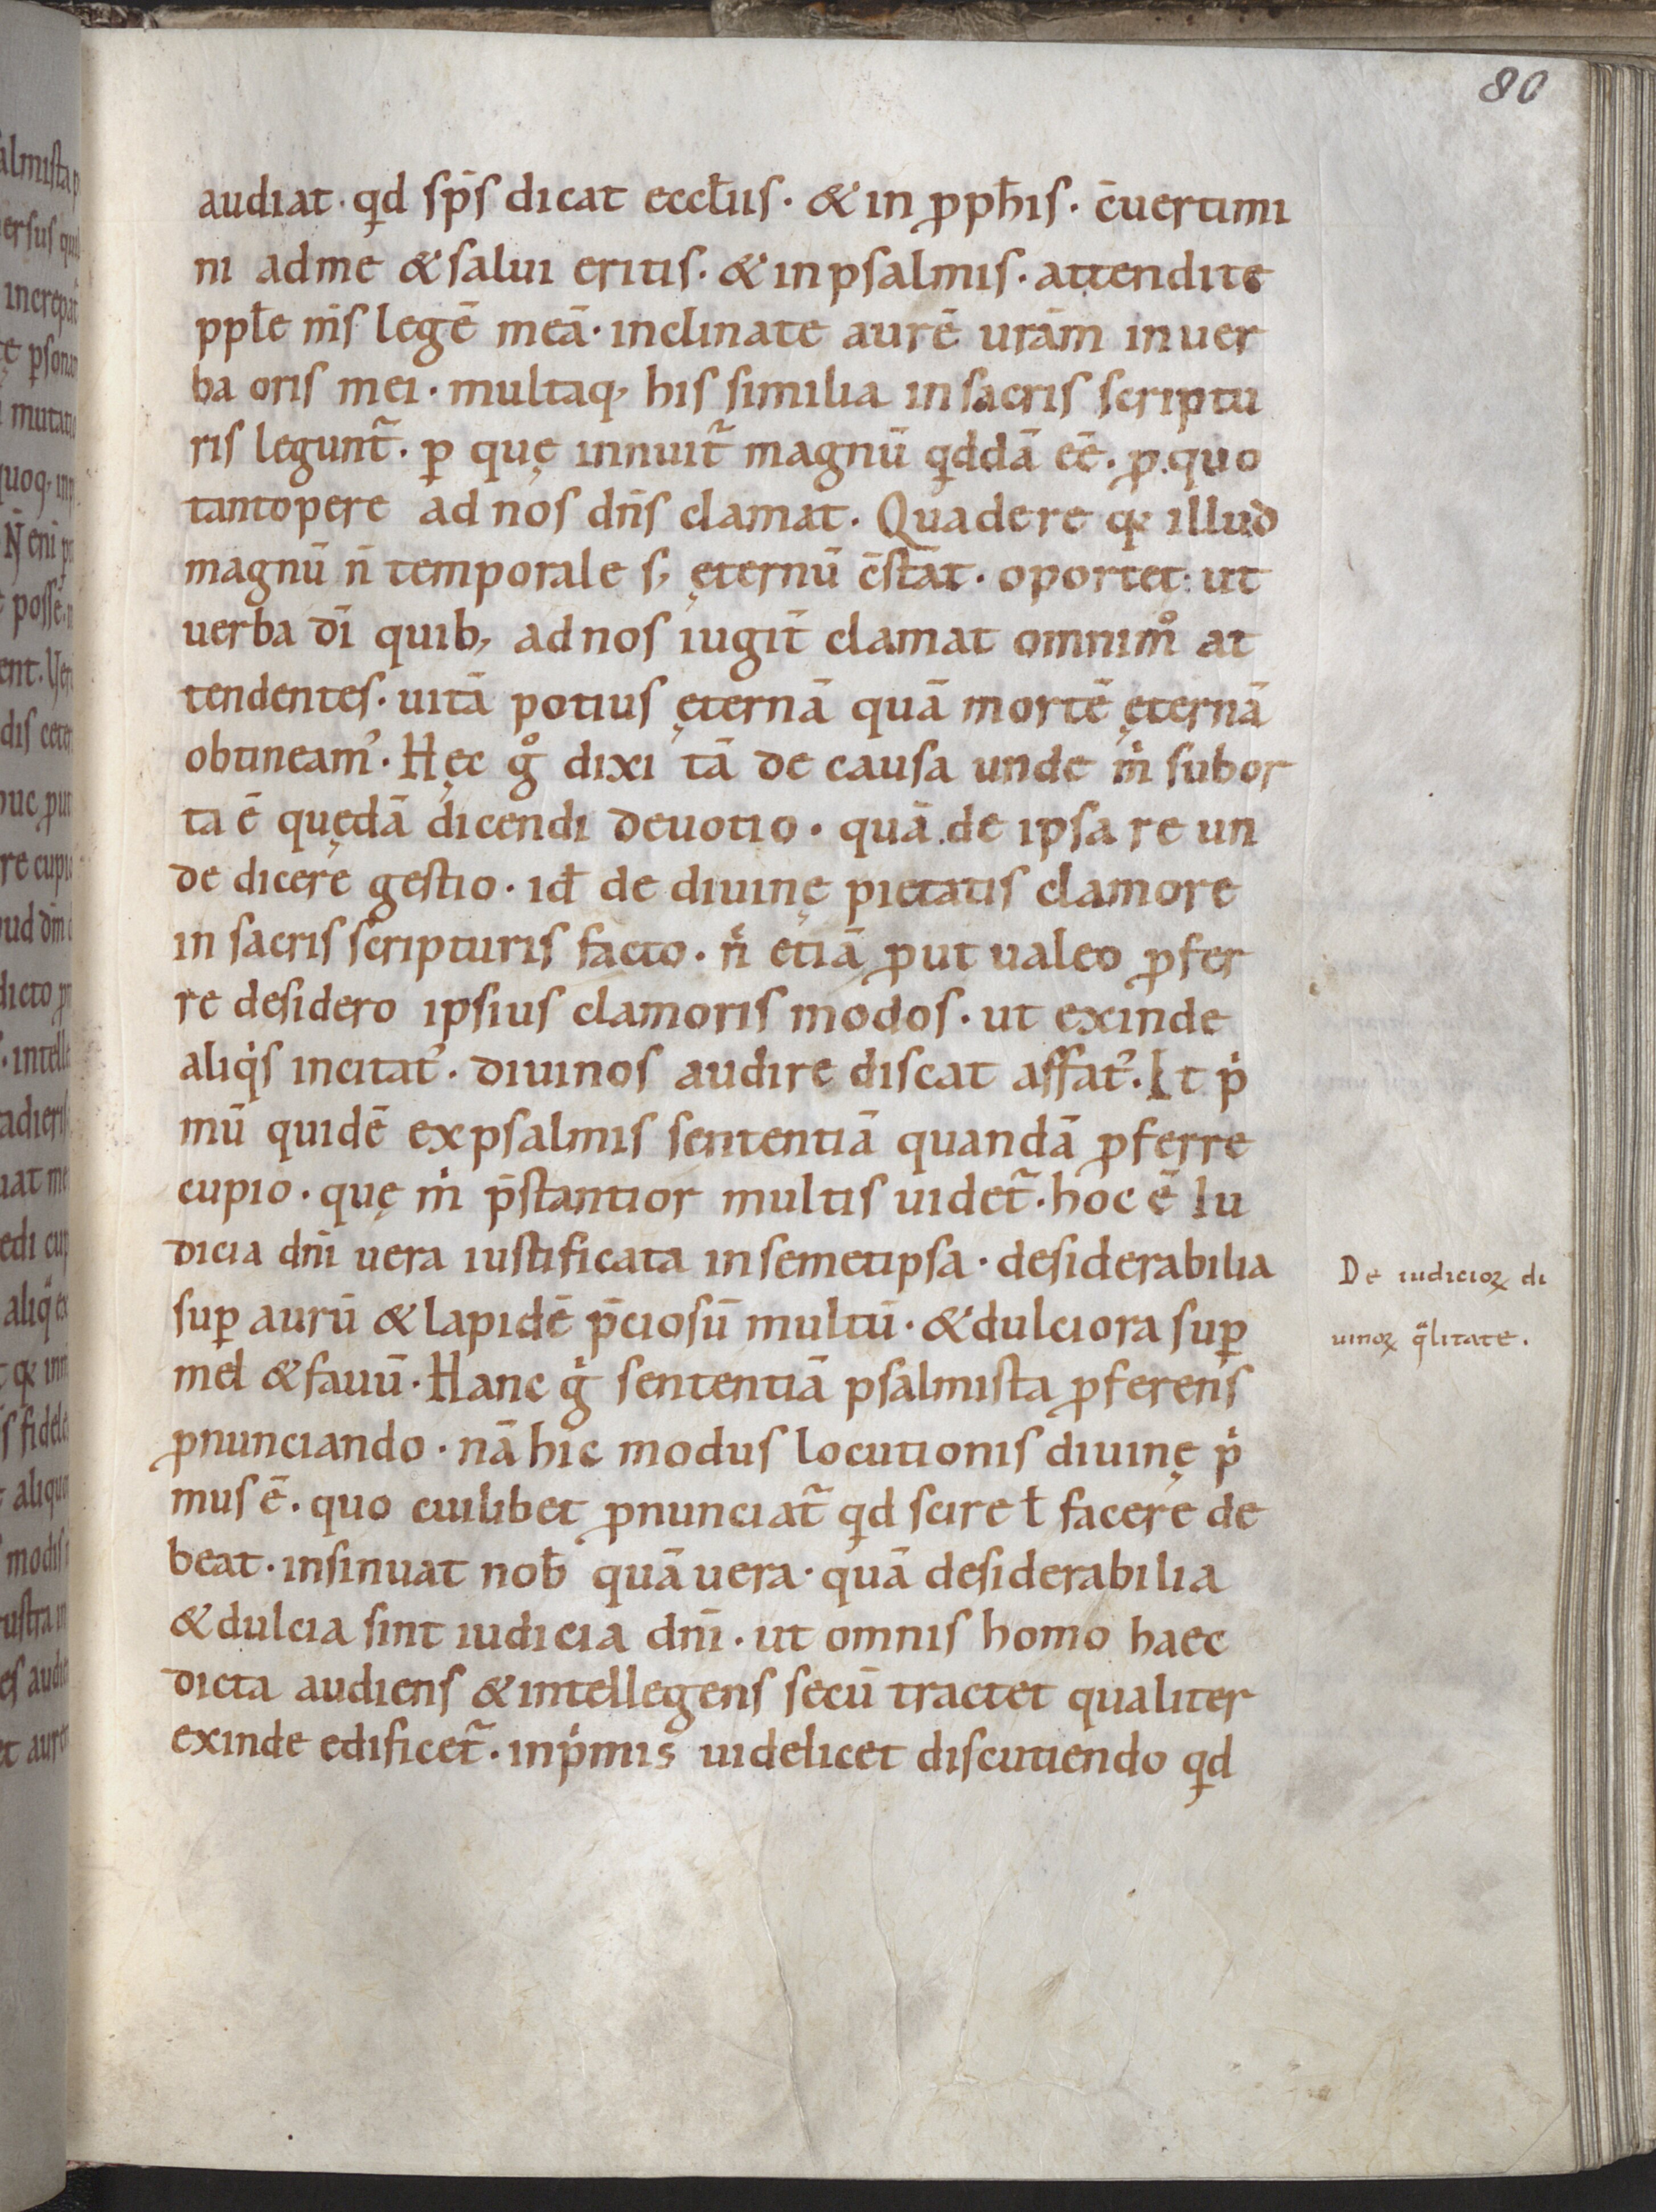 80
audiat · qd sp̄s dicat eccłıis · & in ꝓph̄is · c̄uertimi
ni ad me & salui eritis · & in psalmis · attendite
pplе m̄s legē meā · inclinate aurē urām in uer
ba oris mei · multaq; his similia in sacris scriptu
ris legunt̃ · ꝑ quę innuit̃ magnū qddā eē · ꝓ quo
tantopere ad nos dn̄s clamat · Qua de re qꝛ illud
magnū n̄ temporale s; ęternū c̄stāt · oportet : ut
uerba dī quib; ad nos iugit̄ clamat omnimͦ at
tendentes · uitā potius ęternā quā mortē ęternā
obtineam᾽ · Hęc gͦ dixi tā de causa unde mⁱ subor
ta ē quędā dicendi deuotio · quā de ipsa re un
de dicere gestio · id̄ de diuinę pietatis clamore
in sacris scripturis facto · n̄ etiā ꝓut ualeo ꝓfer
re desidero ipsius clamoris modos · ut exinde
aliqⁱs incitat᾽ · diuinos audire discat affat᾽ · It pⁱ
mū quidē ex psalmis sententiā quandā ꝓferre
cupio · quę mⁱ p̄stantior multis uidet̃ · hoc ē Iu
dicia dn̄i uera iustificata in semetipsa · desiderabilia
suꝑ aurū & lapidē p̄ciosū multū · & dulciora suꝑ
mel & fauū · Hanc gⁱ sententiā psalmista ꝓferens
ꝓnunciando · nā hic modus locutionis diuinę pⁱ
mus ē · quo cuilibet ꝓnunciat̃ qd scire ł facere de
beat · insinuat nob̄ quā uera · quā desiderabilia
& dulcia sint iudicia dn̄i · ut omnis homo haec
dicta audiens & intellegens secū tractet qualiter
exinde edificet̃ · inpⁱmis uidelicet discutiendo qd
De iudicioꝝ di
uinoꝝ qͣlitate .